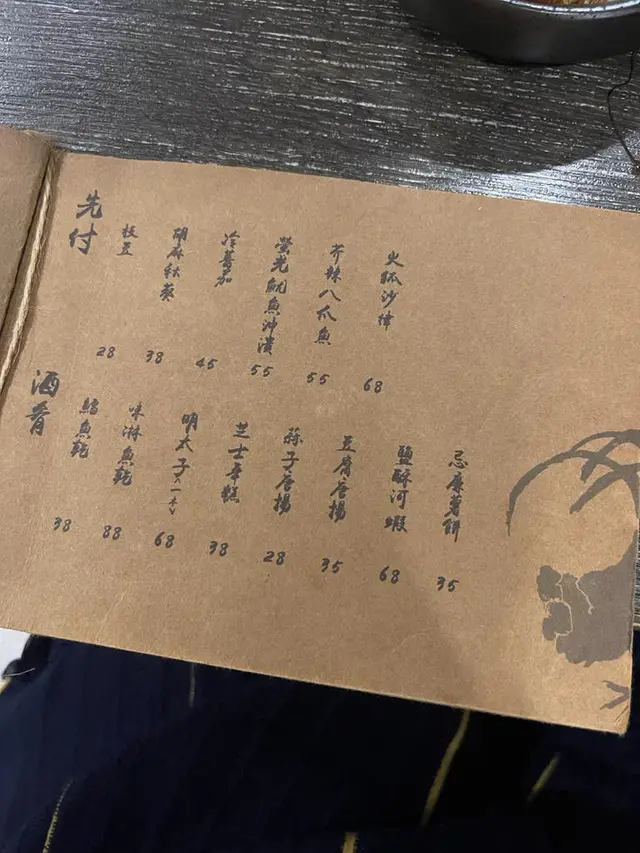 先付
枝豆 28
胡麻秋葵 38
冷蕃茄 45
螢光魷魚沖漬 55
芥辣八爪魚 55
火炙沙律 68
酒肴
鱈魚乾 38
味淋魚乾 88
明太子(一本) 68
芝士年糕 38
蒜子唐揚 28
豆腐唐揚 35
鹽酥河蝦 68
忌廉薯餅 35